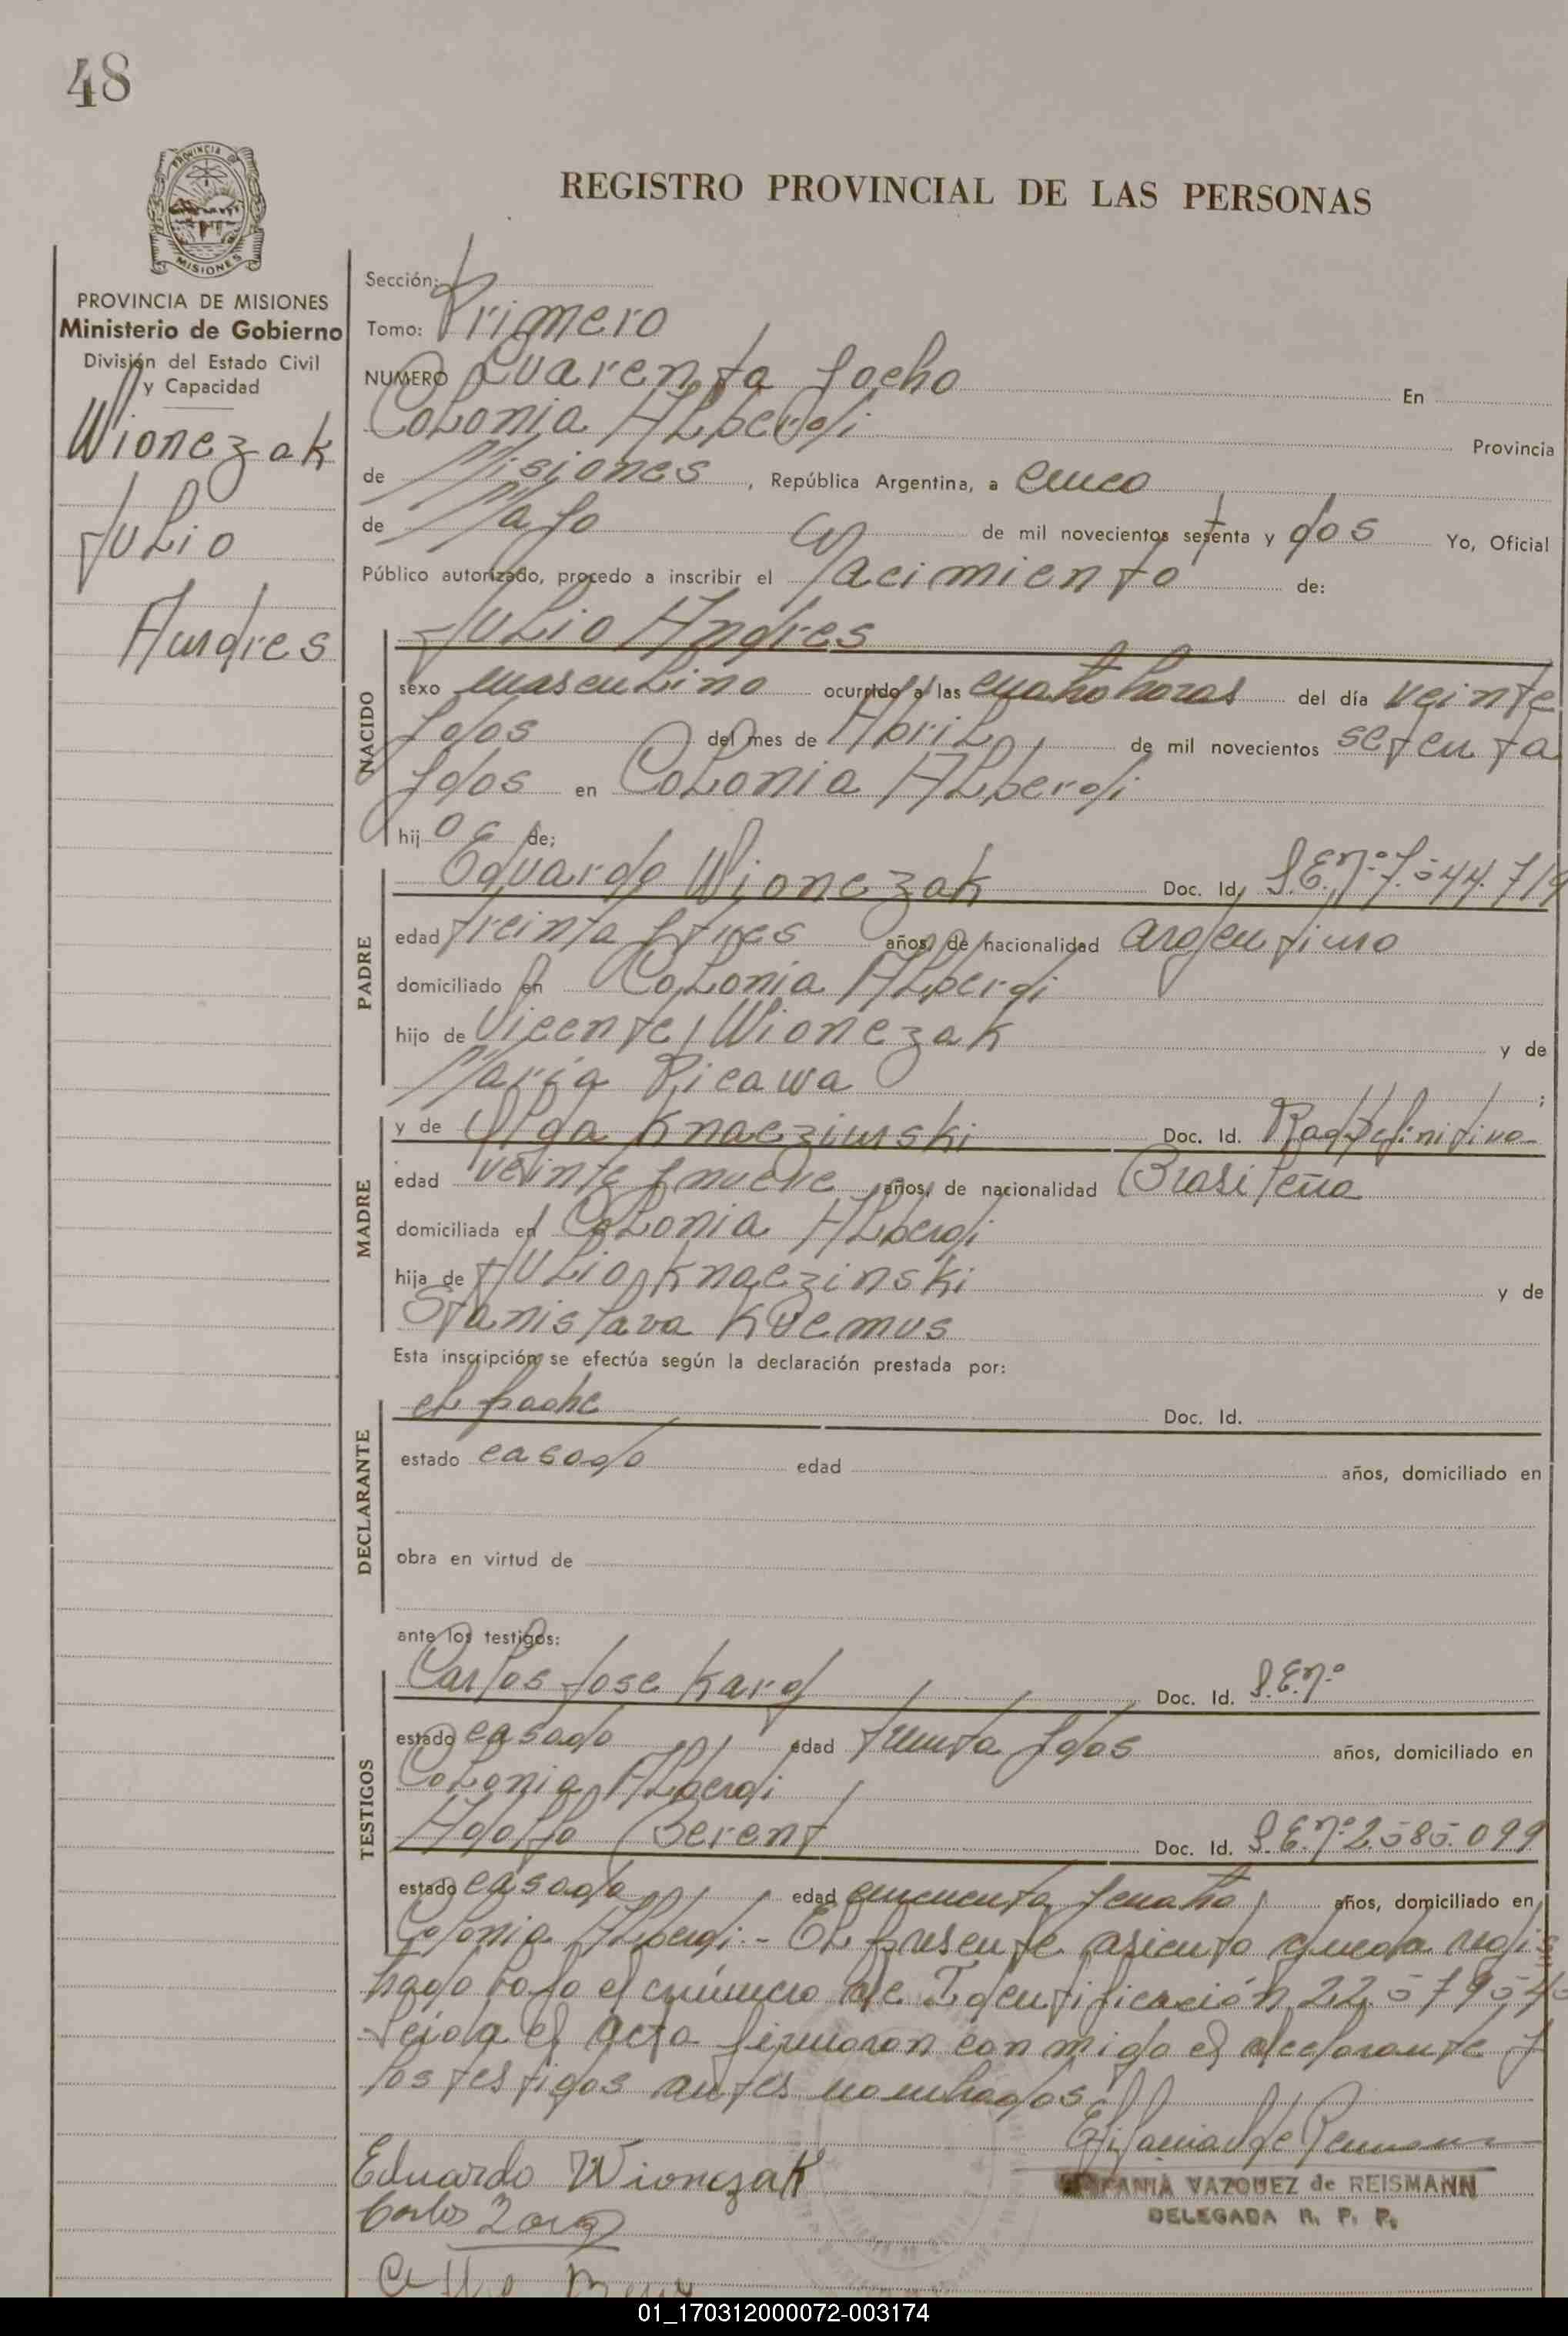 48
PROVINCIA DE
MISIONES
REGISTRO PROVINCIAL DE LAS PERSONAS
PROVINCIA DE MISIONES
Ministerio de Gobierno
División del Estado Civil
y Capacidad
Wionczak
Julio
Andres
Sección:
Tomo: Primero
NUMERO Cuarenta y ocho En
Colonia Alberdi Provincia
de Misiones, República Argentina, a cinco
de Mayo de mil novecientos setenta y dos Yo, Oficial
Público autorizado, procedo a inscribir el Nacimiento de:
NACIDO
Julio Andres
sexo masculino ocurrido a las cuatro horas del día veinte
y dos del mes de Abril de mil novecientos setenta
y dos en Colonia Alberdi
hijo de;
PADRE
Eduardo Wionczak Doc. Id. L.E.nº 7.544.719
edad treinta y tres años, de nacionalidad argentino
domiciliado en Colonia Alberdi
hijo de Vicente Wionczak y de
Maria Picawa ;
MADRE
y de Olga Knaczinski Doc. Id. Rad. Definitiva
edad veinte y nueve años, de nacionalidad Brasileña
domiciliada en Colonia Alberdi
hija de Julio Knaczinski y de
Stanislava Kucmus
Esta inscripción se efectúa según la declaración prestada por:
DECLARANTE
el padre Doc. Id.
estado casado edad años, domiciliado en
obra en virtud de
ante los testigos:
TESTIGOS
Carlos Jose Karg Doc. Id. L.E.nº
estado casado edad treinta y dos años, domiciliado en
Colonia Alberdi
Adolfo Berent Doc. Id. L.E.nº 2.585.099
estado casado edad cincuenta y cuatro años, domiciliado en
Colonia Alberdi.- El presente asiento queda regis
trado bajo el número de Identificación 22.579.54
Leida el acta firmaron con migo el declarante y
los testigos antes nombrados.
Eduardo Wionczak
Carlos
VAZQUEZ de REISMANN
DELEGADA R. P. P.
01_170312000072-003174